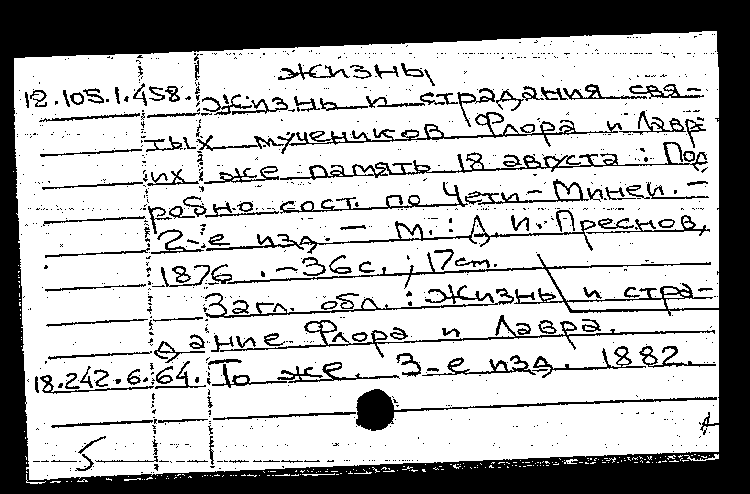 Жизнь
18.105.1.458. Жизнь и страдания свя-
тых мучеников Флора и Лавр
их же память 18 августа : Под
робно сост. по Чети-Минеи. -
2-е изд. - М. : Д. И. Преснов,
1876. - 36 с. ; 17 cm.
Загл. обл. : Жизнь и стра-
дание Флора и Лавра.
18.242.6.64. То же. 3-е изд. 1882.
5